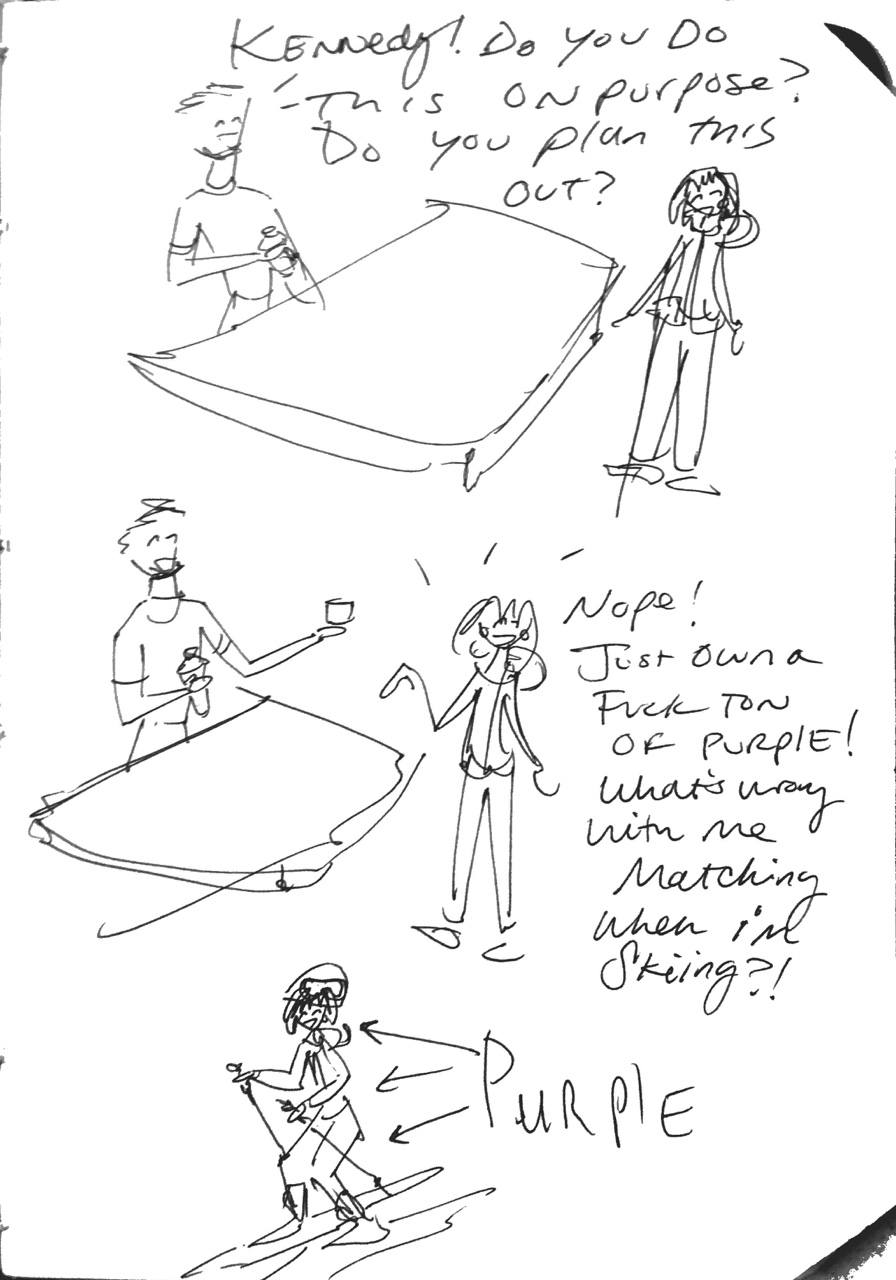 Kennedy! Do you Do
This on purpose?
Do you plan this
out?
Nope!
Just own a
Fuck TON
OF PURPLE!
What's wrong
with me
Matching
when i'm
Skiing?!
PURPLE